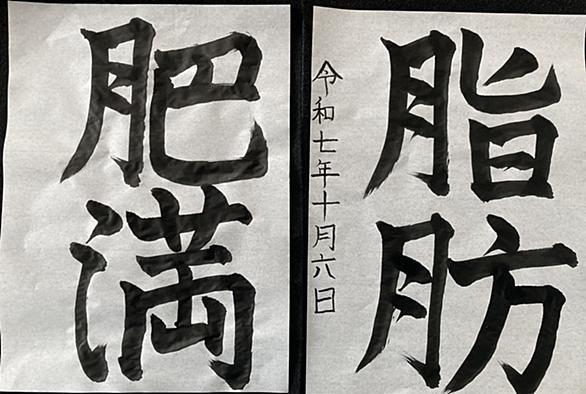 脂肪
令和七年十月六日
肥満